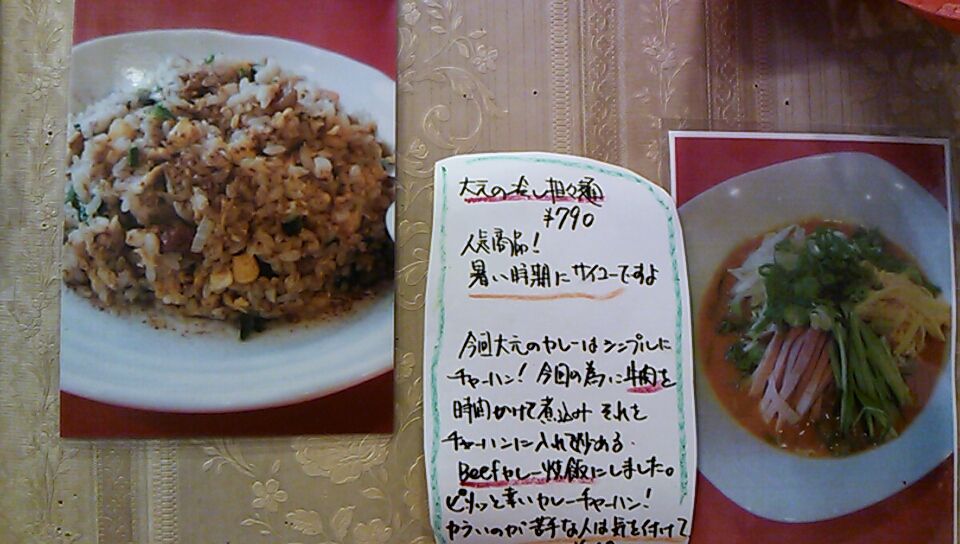 大元の冷し担々麺
¥790
人気商品!
暑い時期にサイコーですよ
今回大元のカレーはシンプルに
チャーハン! 今回の為に牛肉を
時間かけて煮込み それを
チャーハンに入れて炒める。
Beefカレー炒飯にしました。
ピリッと辛いカレーチャーハン!
からいのが苦手な人は気を付けて